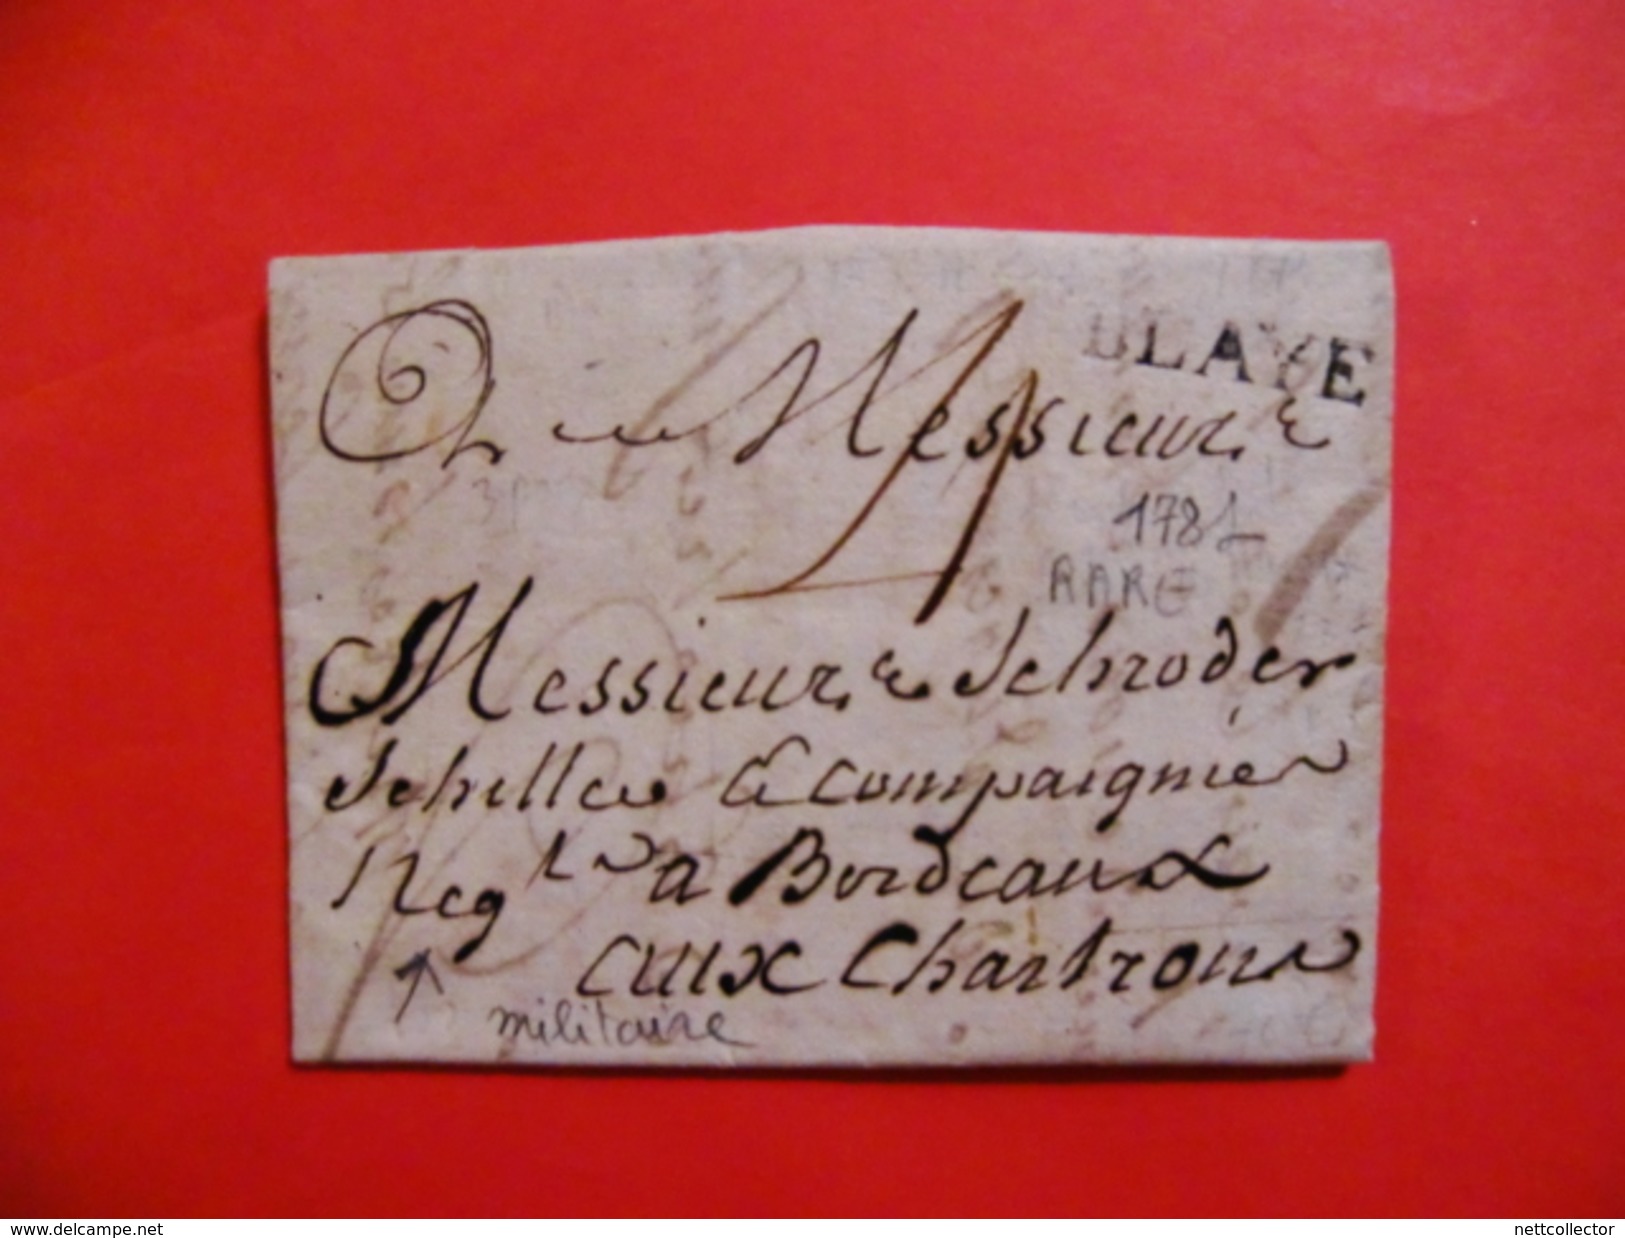 BLAYE
A Messieurs
4
1781
RARE
Messieurs Schroder
Schiller & Compagnie
Neg.ts a Bordeaux
aux Chartrons
militaire
www.delcampe.net
nettcollector